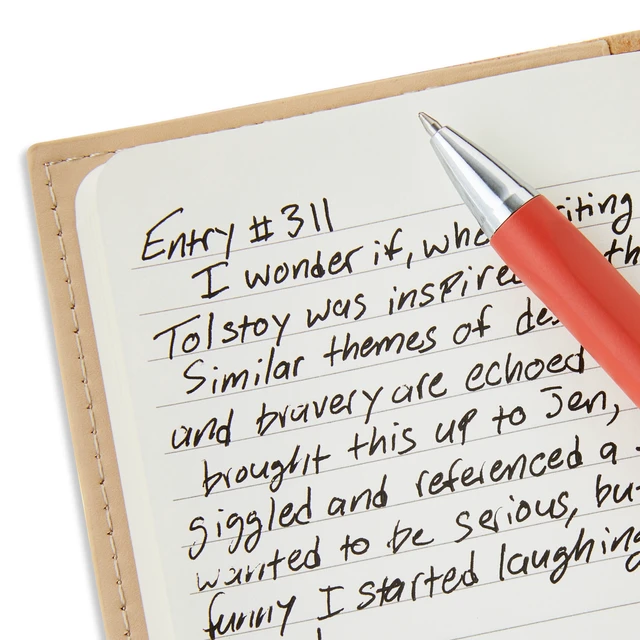 Entry #311
I wonder if, iting
Tolstoy was inspire th
Similar themes of de
and bravery are echoed
brought this up to Jen,
giggled and referenced a
wanted to be serious, bu
funny I started laughing